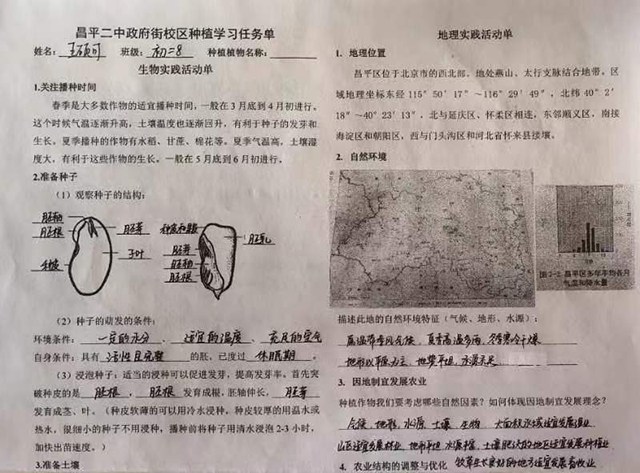 昌平二中政府街校区种植学习任务单
姓名： 班级：初二8 种植植物名称：
生物实践活动单
1.关注播种时间
春季是大多数作物的适宜播种时间，一般在3月底到4月初进行。
这个时候气温逐渐升高，土壤温度也逐渐回升，有利于种子的发芽和
生长。夏季播种的作物有水稻、甘蔗、棉花等。夏季气温高，土壤湿
度大，有利于这些作物的生长。一般在5月底到6月初进行。
2.准备种子
（1）观察种子的结构：
胚轴
胚根
种皮
胚芽
子叶
种皮和果皮
胚芽
胚轴
胚根
胚乳
（2）种子的萌发的条件：
环境条件：一定的水分、适宜的温度、充足的空气
自身条件：具有活性且完整的胚，已度过休眠期。
（3）浸泡种子：适当的浸种可以促进发芽，提高发芽率。首先突
破种皮的是胚根，胚根发育成根，胚轴伸长，胚芽
发育成茎、叶。（种皮软薄的可以用冷水浸种，种皮较厚的用温水或
热水，很细小的种子不用浸种，播种前将种子用清水浸泡2-3小时，
加快出苗速度。）
3.准备土壤
地理实践活动单
1. 地理位置
昌平区位于北京市的西北部，地处燕山、太行支脉结合地带。区
域地理坐标东经115°50′17″～116°29′49″，北纬40°2′
18″～40°23′13″。北与延庆区、怀柔区相连，东邻顺义区，南接
海淀区和朝阳区，西与门头沟区和河北省怀来县接壤。
2. 自然环境
图2-2 昌平区多年平均各月
气温和降水量
描述此地的自然环境特征（气候、地形、水源）：
温带季风气候，夏季高温多雨，冬季寒冷干燥
地形以平原为主，地势平坦，水源充足
3. 因地制宜发展农业
种植作物我们要考虑哪些自然因素？如何体现因地制宜发展理念？
气候 地形 水源 土壤 生物 大面积水域适宜发展渔业
山区适宜发展林业，地形平坦 水源丰富，土壤肥沃的地区适宜发展种植业
4. 农业结构的调整与优化 牧草生长良好的地方适宜发展畜牧业